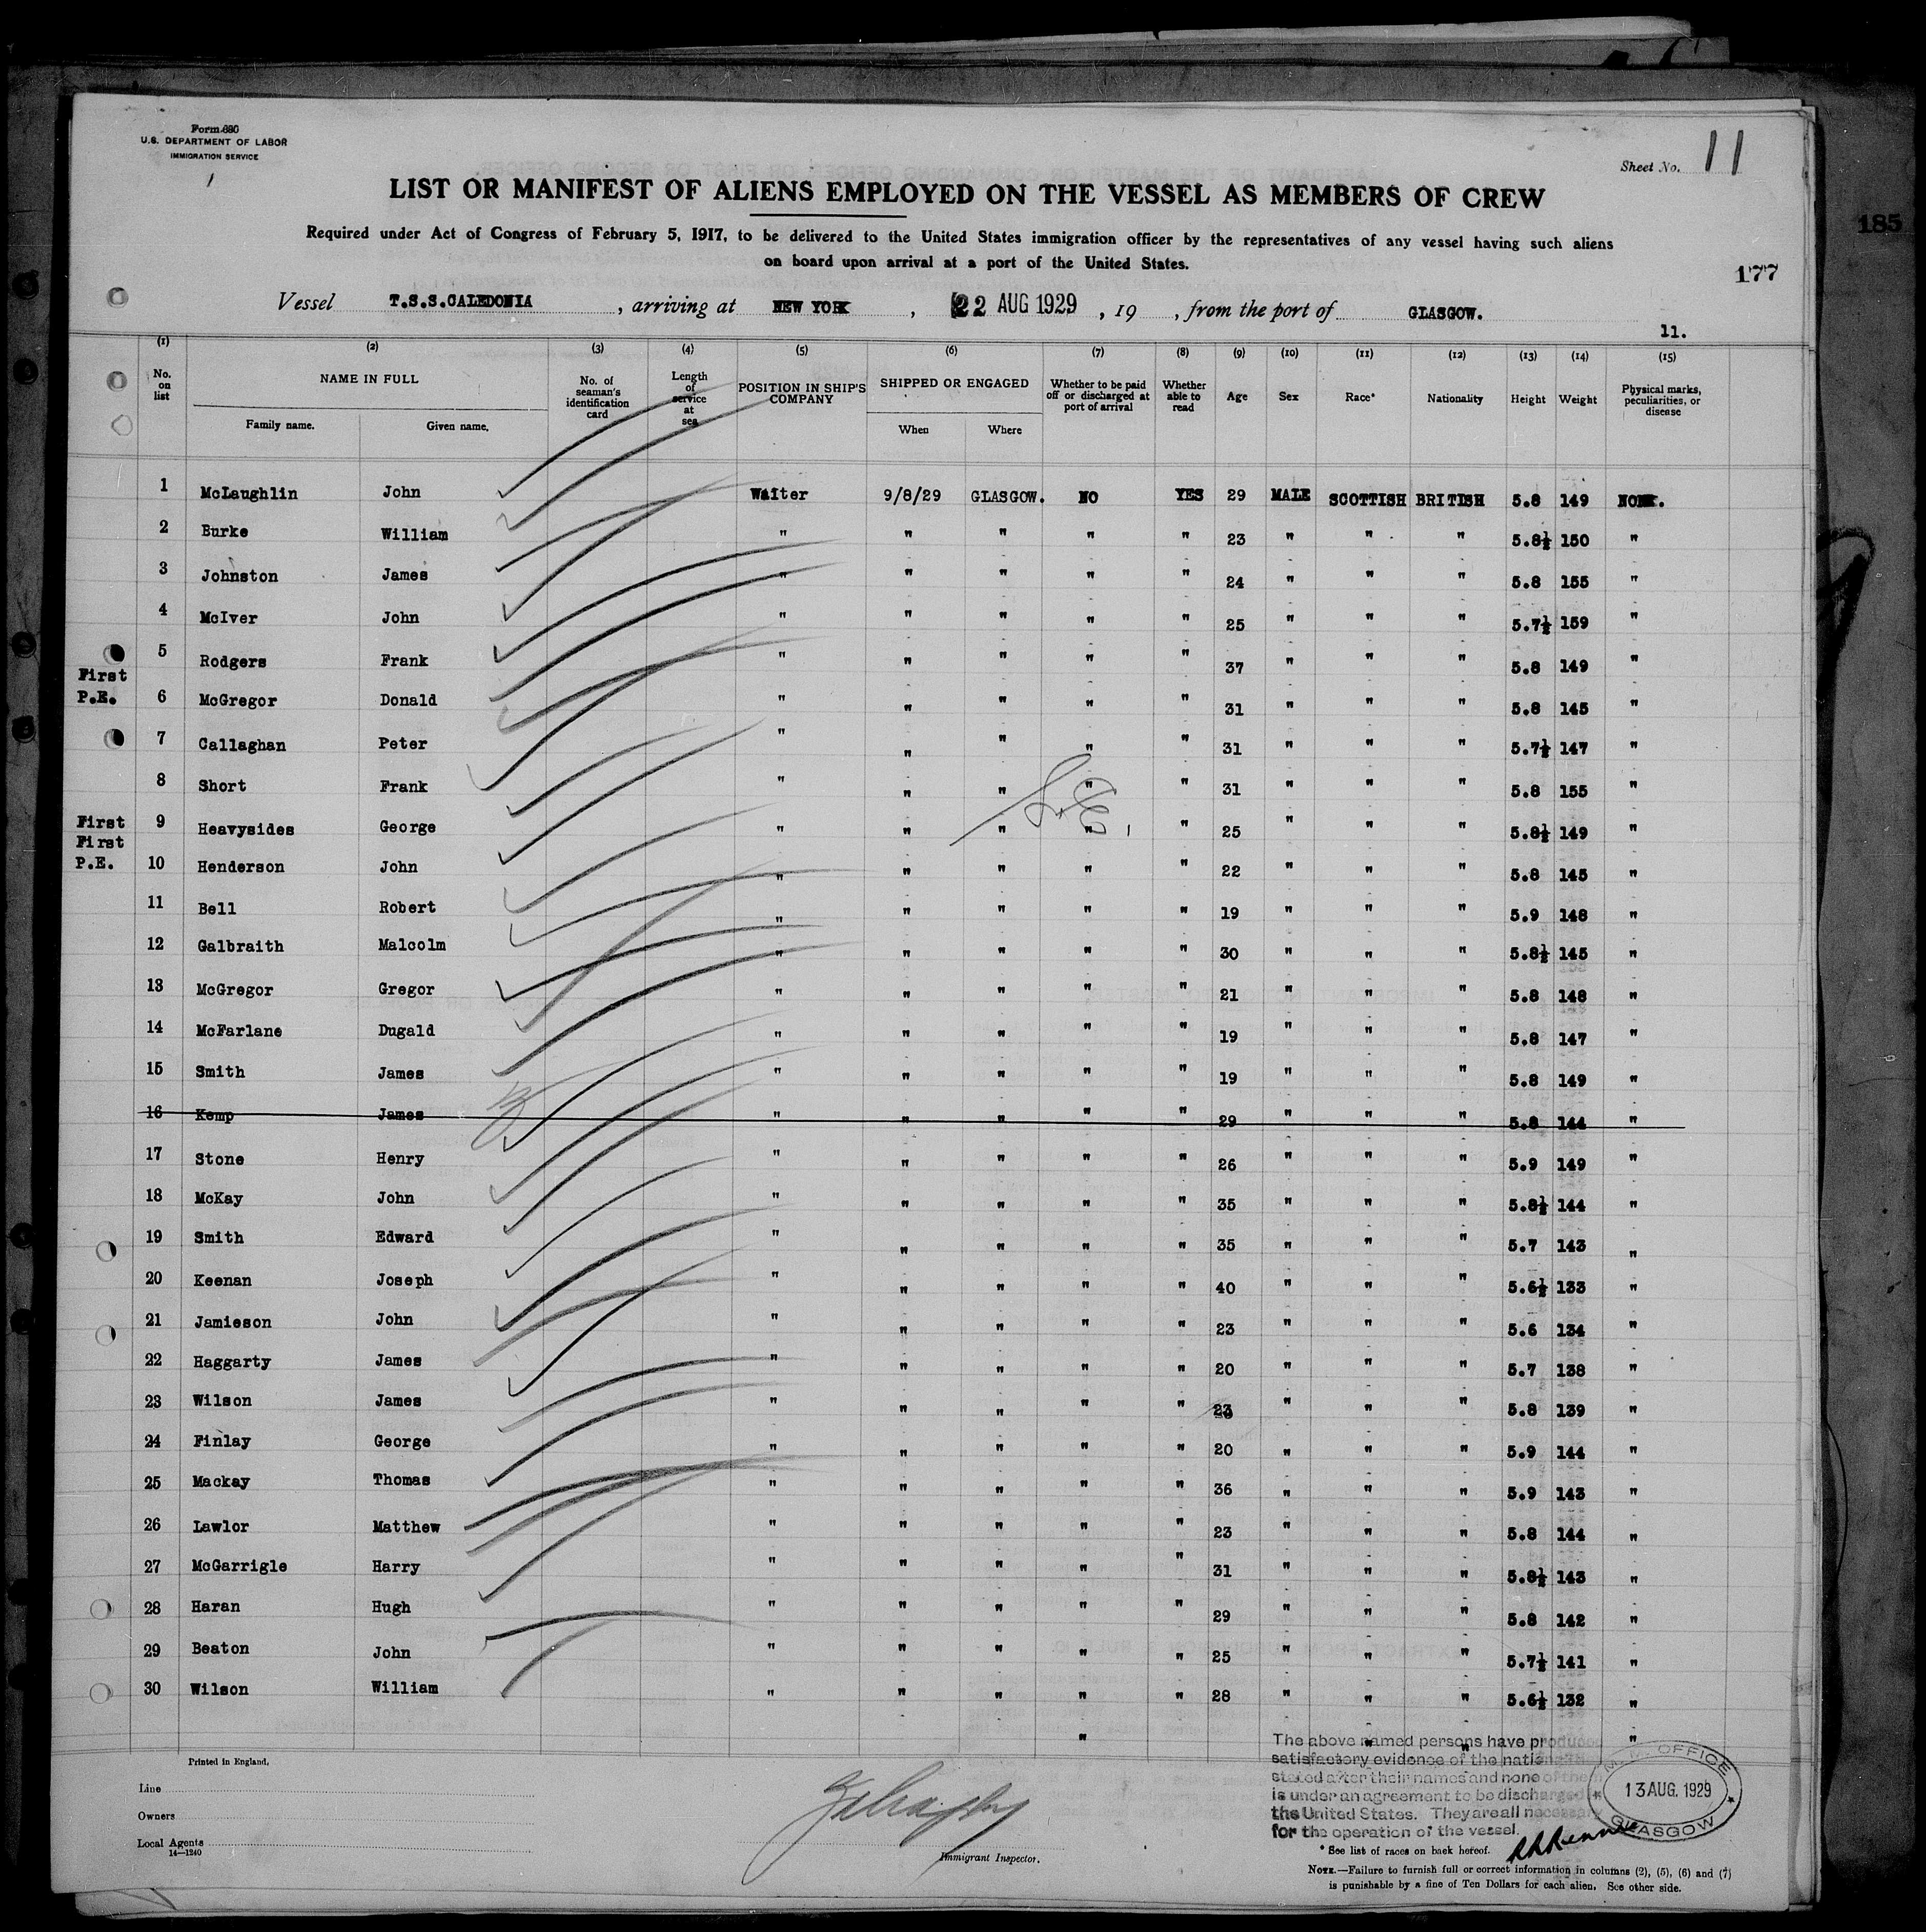 Form 680
U.S. DEPARTMENT OF LABOR
IMMIGRATION SERVICE
Sheet No. 11
LIST OR MANIFEST OF ALIENS EMPLOYED ON THE VESSEL AS MEMBERS OF CREW
185
Required under Act of Congress of February 5, 1917, to be delivered to the United States immigration officer by the representatives of any vessel having such aliens
on board upon arrival at a port of the United States.
177
Vessel T.S.S.CALEDONIA , arriving at NEW YORK , 22 AUG 1929 , 19 , from the port of GLASGOW.
11.
(1) (2) (3) (4) (5) (6) (7) (8) (9) (10) (11) (12) (13) (14) (15)
No. on list NAME IN FULL Family name. Given name. No. of seaman's identification card Length of service at sea POSITION IN SHIP'S COMPANY SHIPPED OR ENGAGED When Where Whether to be paid off or discharged at port of arrival Whether able to read Age Sex Race* Nationality Height Weight Physical marks, peculiarities, or disease
1 McLaughlin John Waiter 9/8/29 GLASGOW. NO YES 29 MALE SCOTTISH BRITISH 5.8 149 NONE.
2 Burke William " " " " " 23 " " " 5.8½ 150 "
3 Johnston James " " " " " 24 " " " 5.8 155 "
4 McIver John " " " " " 25 " " " 5.7½ 159 "
5 Rodgers Frank " " " " " 37 " " " 5.8 149 "
First
P.E. 6 McGregor Donald " " " " " 31 " " " 5.8 145 "
7 Callaghan Peter " " " " " 31 " " " 5.7½ 147 "
8 Short Frank " " " " " 31 " " " 5.8 155 "
First 9 Heavysides George " " " " " 25 " " " 5.8½ 149 "
First
P.E. 10 Henderson John " " " " " 22 " " " 5.8 145 "
11 Bell Robert " " " " " 19 " " " 5.9 148 "
12 Galbraith Malcolm " " " " " 30 " " " 5.8½ 145 "
13 McGregor Gregor " " " " " 21 " " " 5.8 148 "
14 McFarlane Dugald " " " " " 19 " " " 5.8 147 "
15 Smith James " " " " " 19 " " " 5.8 149 "
16 Kemp James " " " " " 29 " " " 5.8 144 "
17 Stone Henry " " " " " 26 " " " 5.9 149 "
18 McKay John " " " " " 35 " " " 5.8½ 144 "
19 Smith Edward " " " " " 35 " " " 5.7 143 "
20 Keenan Joseph " " " " " 40 " " " 5.6½ 133 "
21 Jamieson John " " " " " 23 " " " 5.6 134 "
22 Haggarty James " " " " " 20 " " " 5.7 138 "
23 Wilson James " " " " " 23 " " " 5.8 139 "
24 Finlay George " " " " " 20 " " " 5.9 144 "
25 Mackay Thomas " " " " " 36 " " " 5.9 143 "
26 Lawlor Matthew " " " " " 23 " " " 5.8 144 "
27 McGarrigle Harry " " " " " 31 " " " 5.8½ 143 "
28 Haran Hugh " " " " " 29 " " " 5.8 142 "
29 Beaton John " " " " " 25 " " " 5.7½ 141 "
30 Wilson William " " " " " 28 " " " 5.6½ 132 "
" " " "
Printed in England.
Line
Owners
Local Agents
14—1240
Immigrant Inspector.
The above named persons have produced
satisfactory evidence of the
stated after their names and none of them
is under an agreement to be discharged
the United States. They are all necessary
for the operation of the vessel.
OFFICE
13 AUG. 1929
GLASGOW
* See list of races on back hereof.
NOTE.—Failure to furnish full or correct information in columns (2), (5), (6) and (7)
is punishable by a fine of Ten Dollars for each alien. See other side.